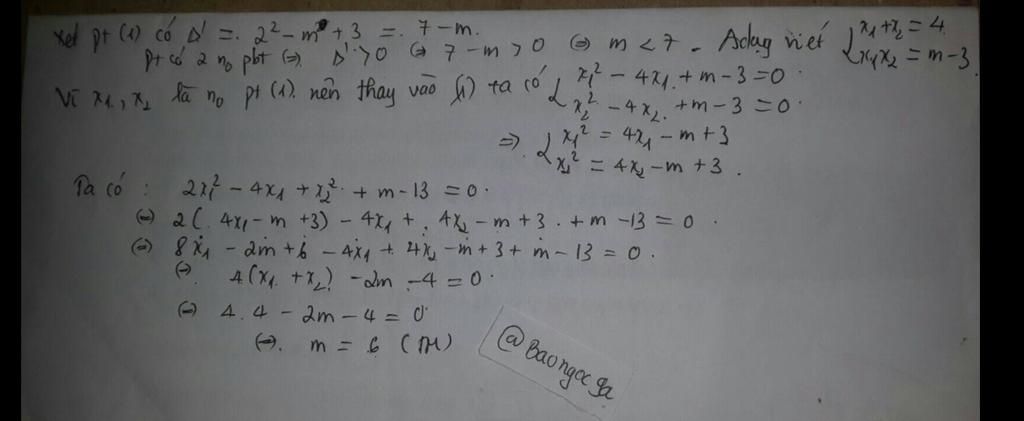 Xét pt (1) có Δ' = 2² - m + 3 = 7 - m.
Pt có 2 n₀ pbt ⇔ Δ' > 0 ⇔ 7 - m > 0 ⇔ m < 7. Adụg viét { x₁ + x₂ = 4
x₁x₂ = m - 3
Vì x₁, x₂ là n₀ pt (1) nên thay vào (1) ta có { x₁² - 4x₁ + m - 3 = 0
x₂² - 4x₂ + m - 3 = 0
⇒ { x₁² = 4x₁ - m + 3
x₂² = 4x₂ - m + 3.
Ta có: 2x₁² - 4x₁ + x₂² + m - 13 = 0
(=) 2(4x₁ - m + 3) - 4x₁ + 4x₂ - m + 3 + m - 13 = 0
(=) 8x₁ - 2m + 6 - 4x₁ + 4x₂ - m + 3 + m - 13 = 0.
(=) 4(x₁ + x₂) - 2m - 4 = 0
(=) 4.4 - 2m - 4 = 0
(=). m = 6 (TM)
@Baongocga